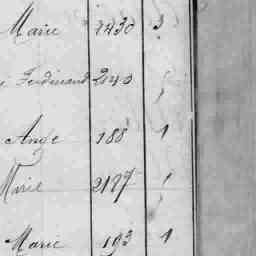 Marie 2430 3
Ferdinand 240
Ange 188 1
Marie 2127 1
Marie 193 1